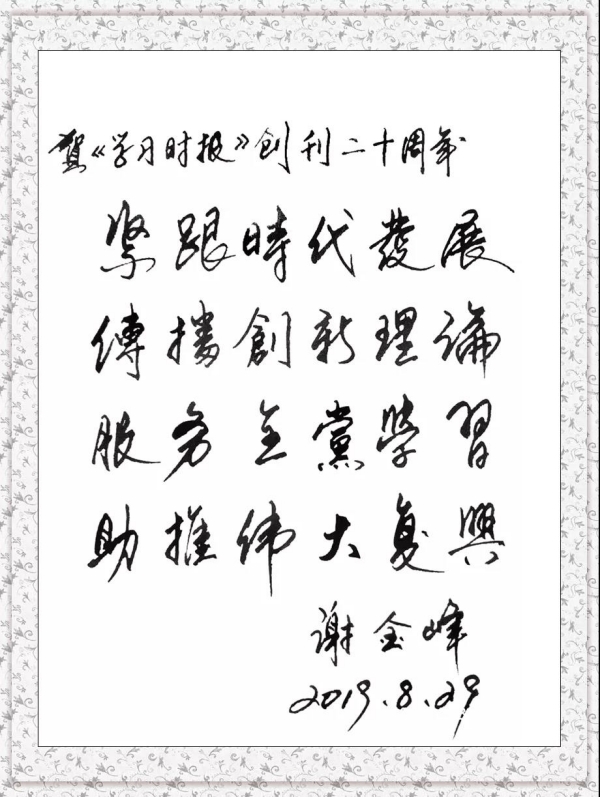 贺《学习时报》创刊二十周年
紧跟時代發展
傳播創新理論
服务全黨學習
助推伟大复興
谢金峰
2019.8.29